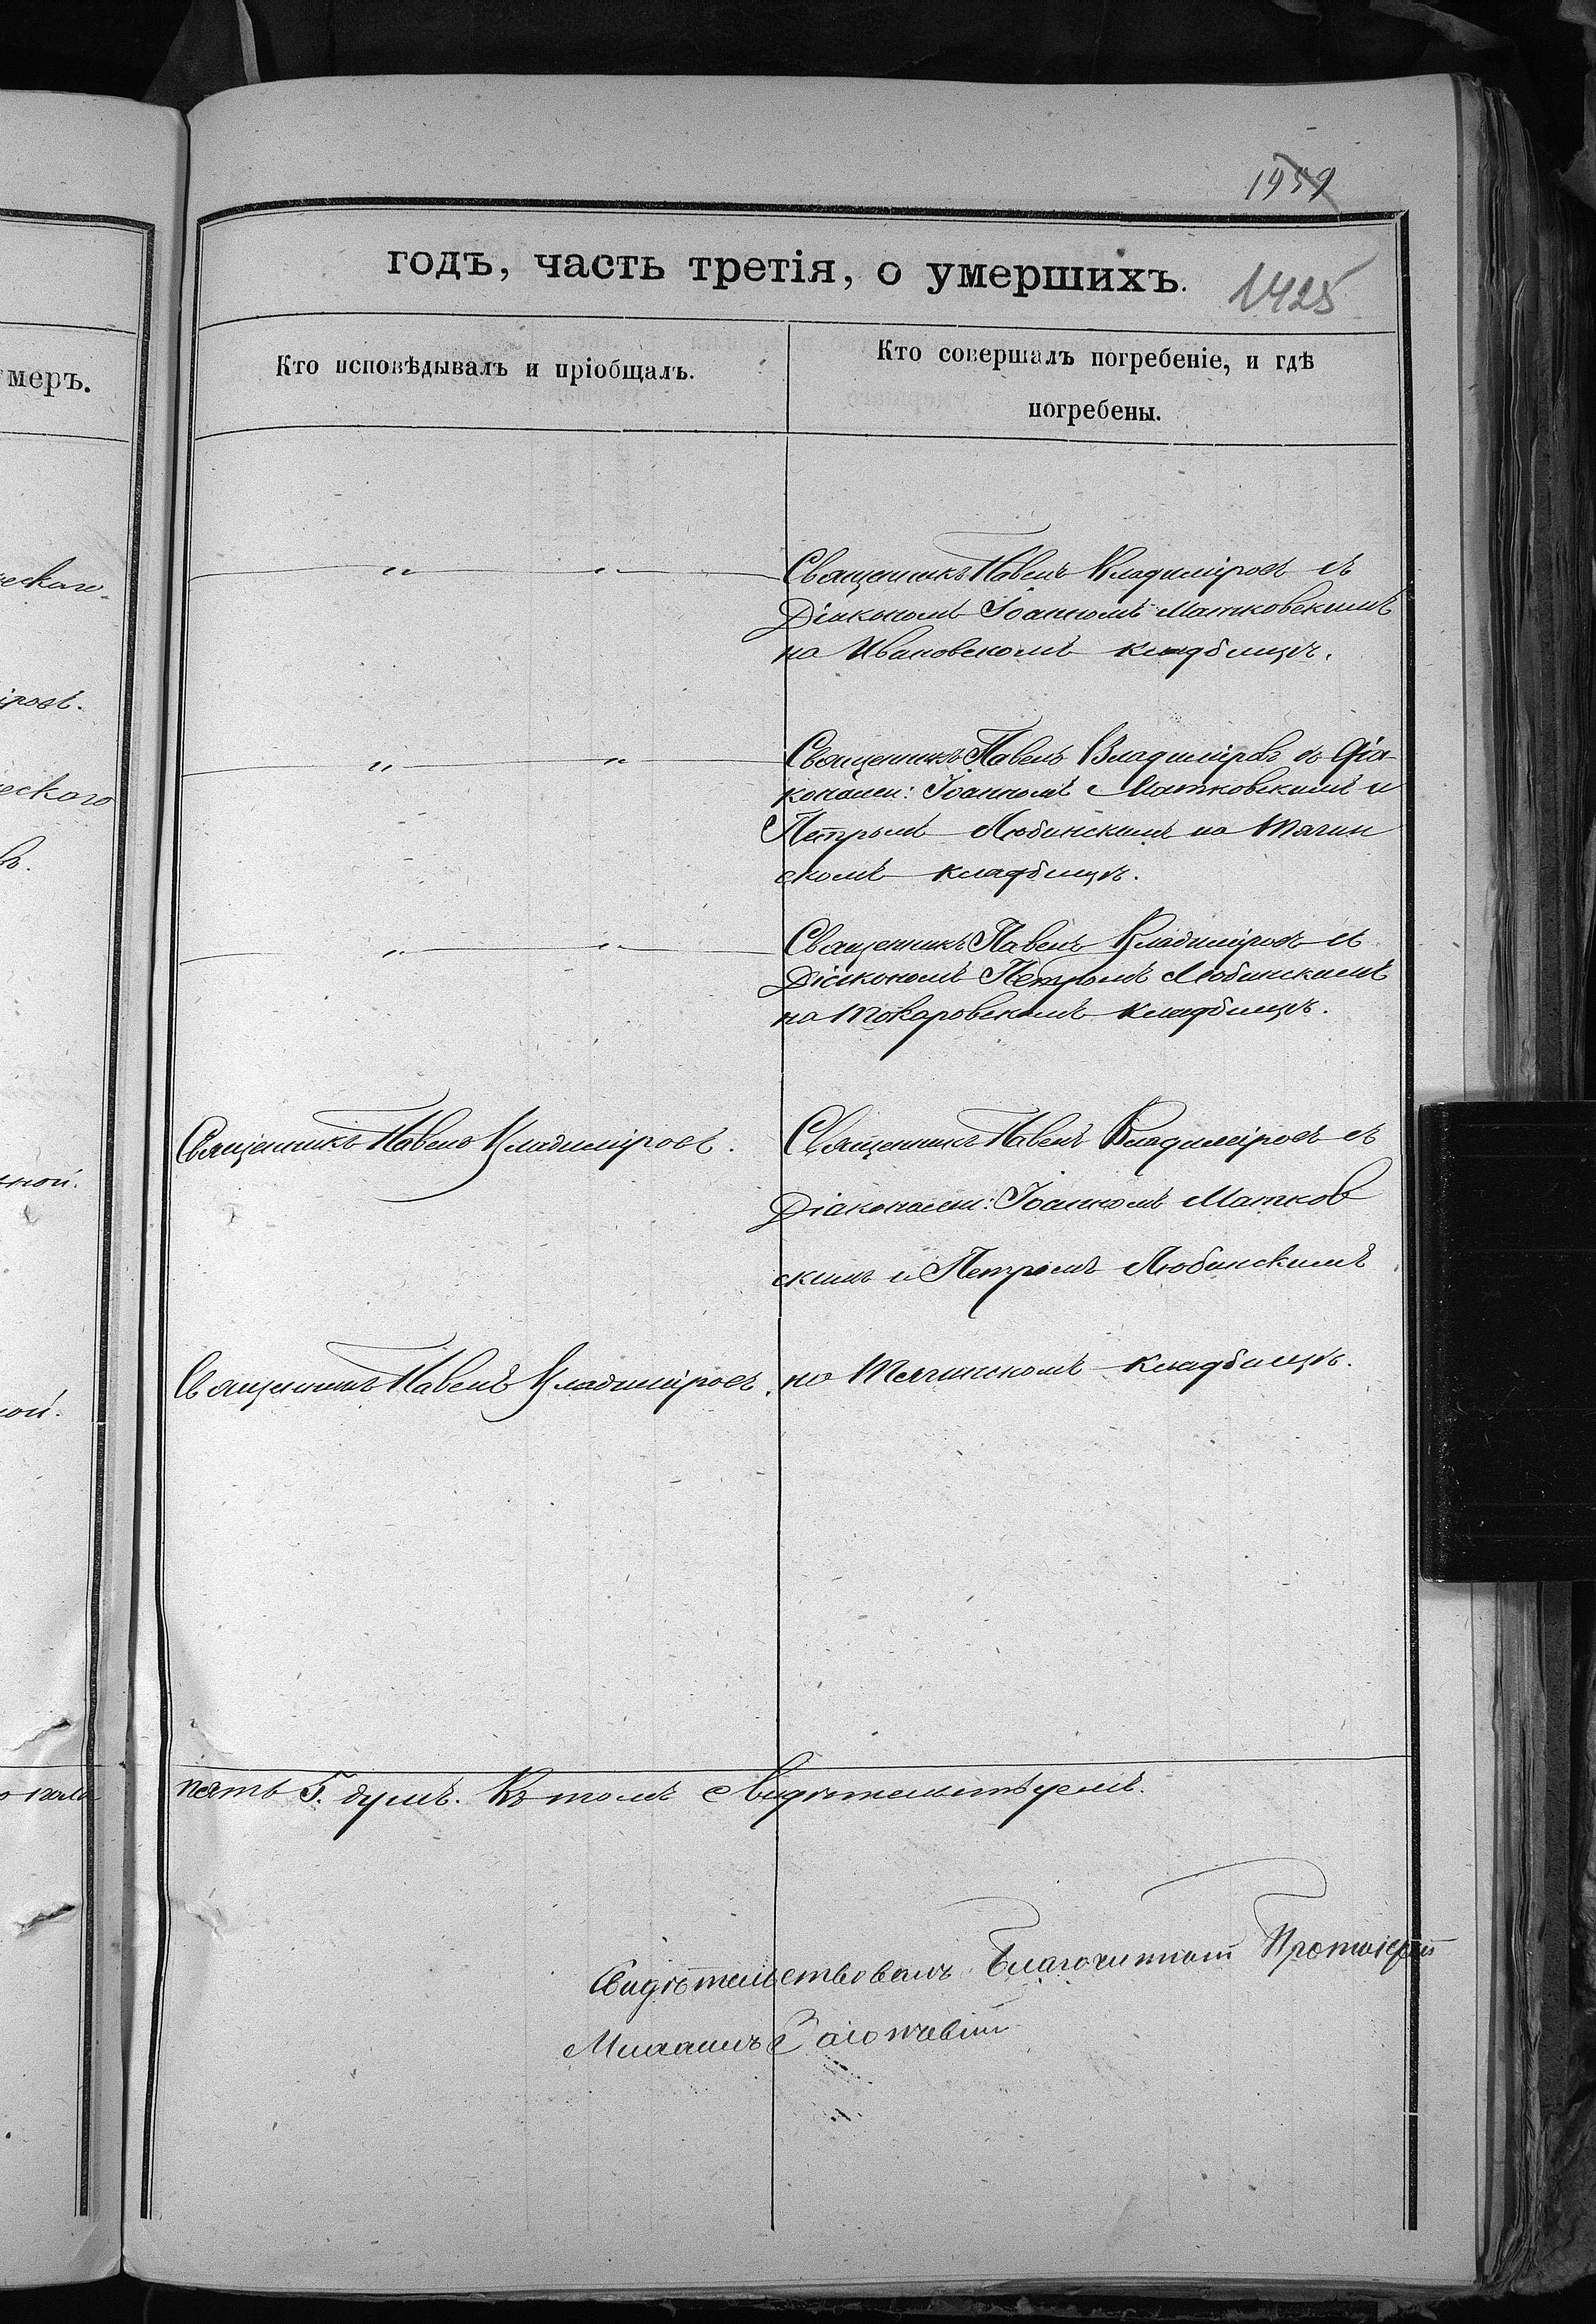 1959
годъ, часть третія, о умершихъ.
1425
меръ.
Кто исповѣдывалъ и пріобщалъ.
Кто совершалъ погребеніе, и гдѣ
погребены.
Священникъ Павелъ Владиміровъ съ
Діакономъ Іоанномъ Матковскимъ
на Ивановскомъ кладбищѣ.
Священникъ Павелъ Владиміровъ съ Діа-
конами: Іоанномъ Матковскимъ и
Петромъ Любинскимъ на Тягин
скомъ кладбищѣ.
Священникъ Павелъ Владиміровъ съ
Діакономъ Петромъ Любинскимъ
на Токаровскомъ кладбищѣ.
Священникъ Павелъ Владиміровъ.
Священникъ Павелъ Владиміровъ съ
Діаконами: Іоанномъ Матков
скимъ и Петромъ Любинскимъ
Священникъ Павелъ Владиміровъ.
на Тягинскомъ кладбищѣ.
пять 5. душъ. Въ томъ свидѣтельствуемъ.
Свидѣтельствовалъ Благочинный Протоіерей
Михаилъ